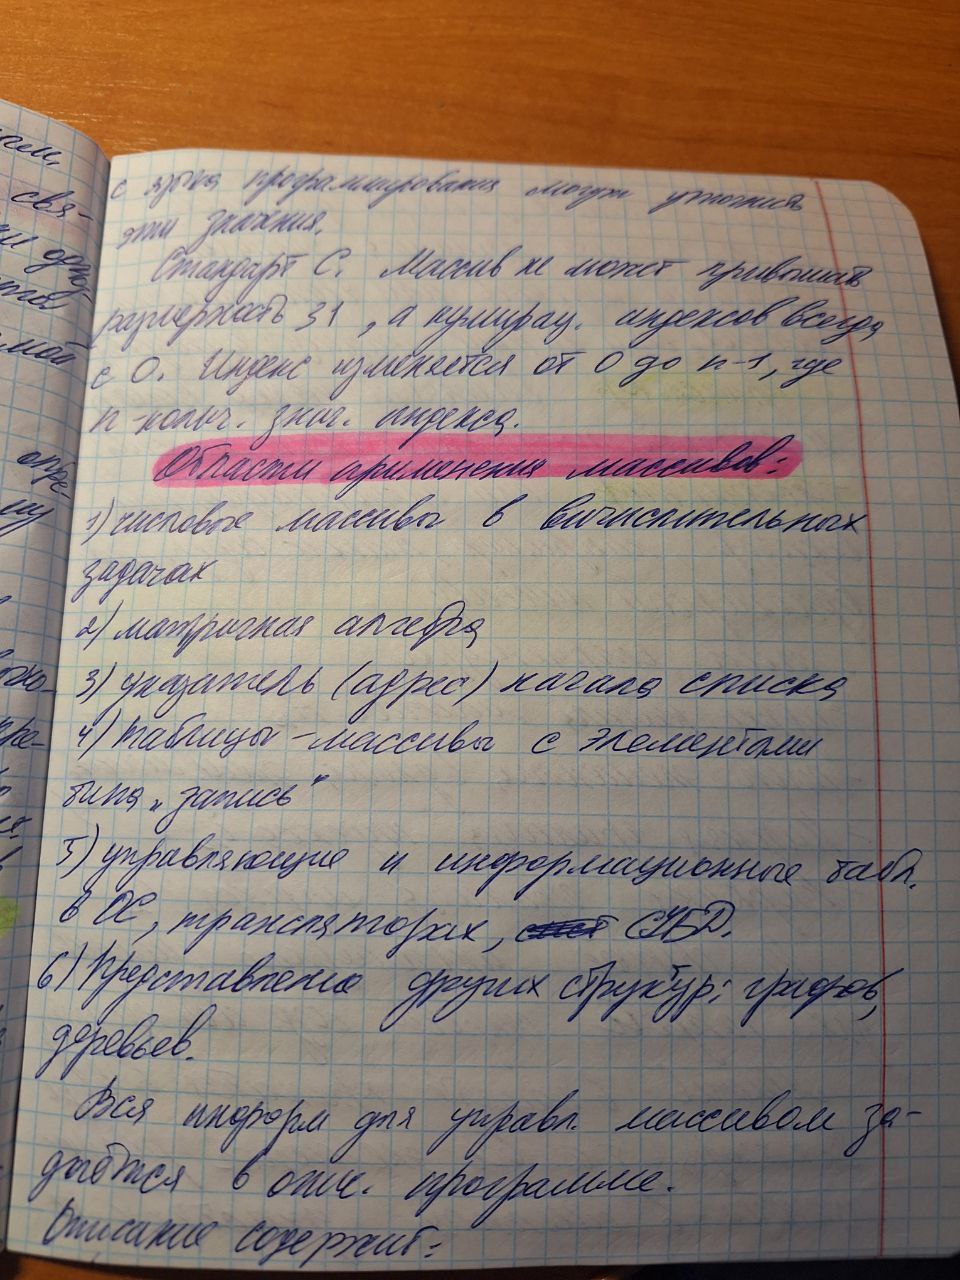 с языка программирования могут уточнися
эти значения.
Стандарт С. Массив не может превышать
размерность 31, а нумерац. индексов всегда
с 0. Индекс изменяется от 0 до n-1, где
n-колич. знач. индекса.
Области применения массивов:
1) числовые массивы в вычислительных
задачах
2) матричная алгебра
3) указатель (адрес) начала списка
4) таблицы-массивы с элементами
типа „запись"
5) управляющие и информационные табл.
в ОС, трансляторах, СУБД.
6) Представление других структур: графов,
деревьев.
Вся информ для управл. массивом за-
даётся в опис. программе.
Описание содержит: